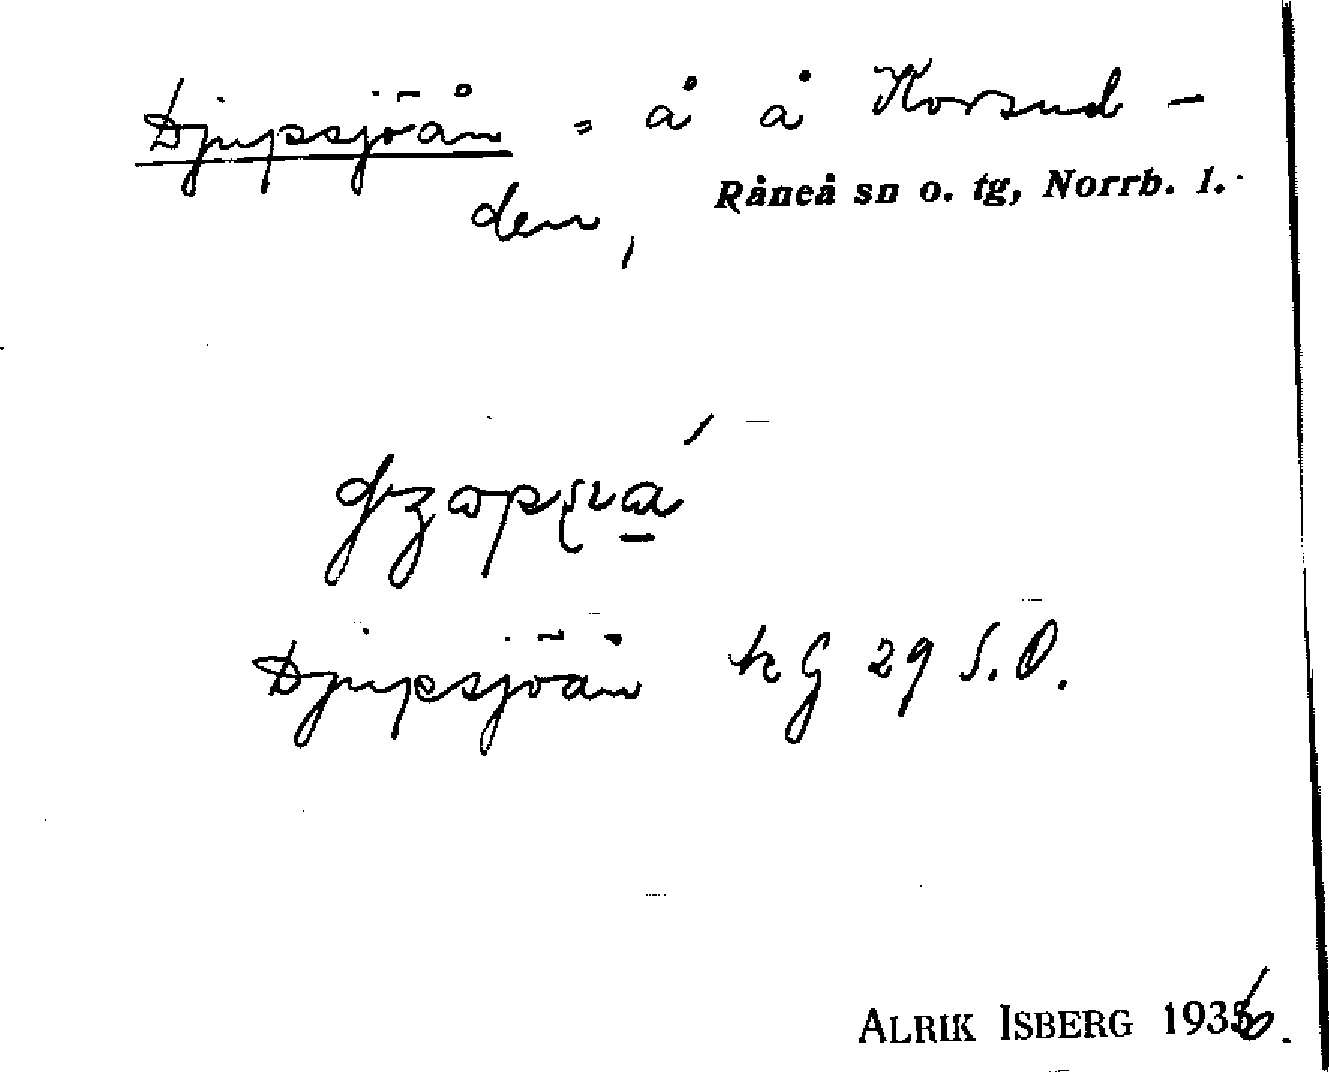 Djupsjöån = å å Korsud-
den, Råneå sn o. tg, Norrb. l.
Djupsjöån kG 29 S.O.
ALRIK ISBERG 1936.